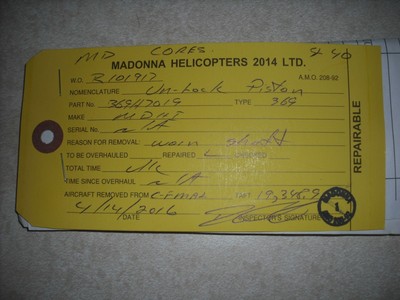 MD CORES
MADONNA HELICOPTERS 2014 LTD.
W.O. R101917 A.M.O. 208-92
NOMENCLATURE Un-Lock Piston
PART No 369H7019 TYPE 369
MAKE MDHI
SERIAL No N/A
REASON FOR REMOVAL: worn
TO BE OVERHAULED REPAIRED
TOTAL TIME
TIME SINCE OVERHAUL N/A
AIRCRAFT REMOVED FROM TSN 19,348.9
4/14/2016
DATE INSPECTOR'S SIGNATURE
REPAIRABLE